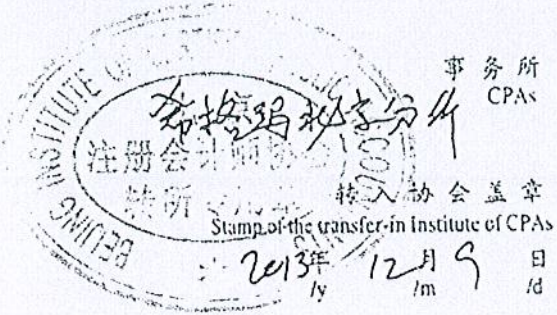 事务所
CPAs
希格玛北京分所
BEIJING INSTITUTE OF
注册会计师协会
转所专用章
转入协会盖章
Stamp of the transfer-in Institute of CPAs
2013年 12月 9日
/y /m /d